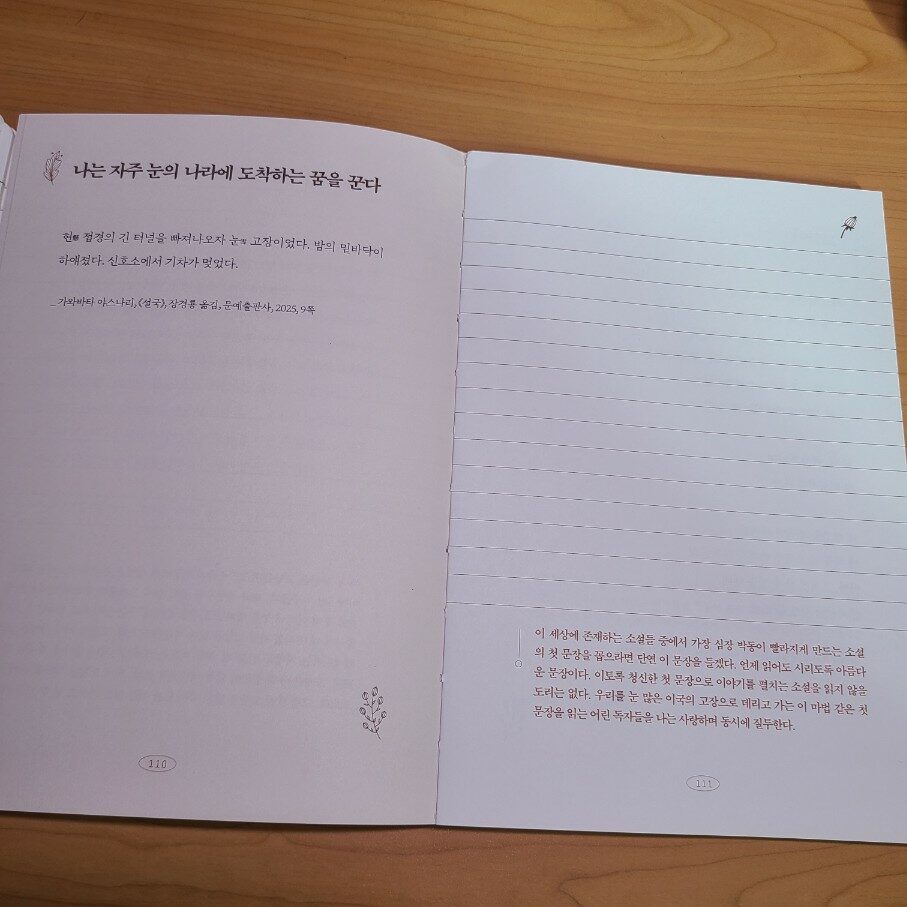 나는 자주 눈의 나라에 도착하는 꿈을 꾼다
현縣 접경의 긴 터널을 빠져나오자 눈雪 고장이었다. 밤의 밑바닥이
하얘졌다. 신호소에서 기차가 멎었다.
_가와바타 야스나리, 《설국》, 장경룡 옮김, 문예출판사, 2025, 9쪽
110
이 세상에 존재하는 소설들 중에서 가장 심장 박동이 빨라지게 만드는 소설
의 첫 문장을 꼽으라면 단연 이 문장을 들겠다. 언제 읽어도 시리도록 아름다
운 문장이다. 이토록 청신한 첫 문장으로 이야기를 펼치는 소설을 읽지 않을
도리는 없다. 우리를 눈 많은 이국의 고장으로 데리고 가는 이 마법 같은 첫
문장을 읽는 어린 독자들을 나는 사랑하며 동시에 질투한다.
111